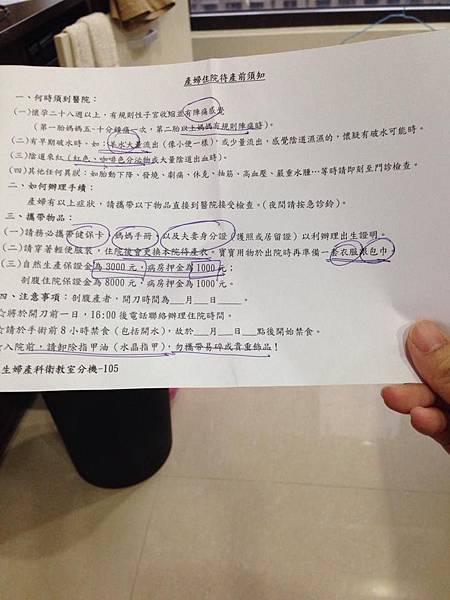 產婦住院待產前須知
一、何時須到醫院：
(一)懷孕二十八週以上，有規則性子宮收縮並有陣痛感覺
(第一胎媽媽五、十分鐘痛一次，第二胎以上媽媽有規則陣痛時)。
(二)有早期破水時。如：羊水大量流出(像小便一樣)，或少量流出，感覺陰道濕濕的，懷疑有破水可能時。
(三)陰道來紅(紅色、咖啡色分泌物或大量陰道出血時)。
(四)其他任何異狀：如胎動下降、發燒、劇痛、休克、抽筋、高血壓、嚴重水腫…等時請即刻至門診檢查。
二、如何辦理手續：
產婦有以上症狀，請攜帶以下物品直接到醫院接受檢查。(夜間請按急診鈴)。
三、攜帶物品：
(一)請務必攜帶健保卡，媽媽手冊，以及夫妻身分證(護照或居留證)以利辦理出生證明。
(二)請穿著輕便服裝，住院後會更換本院待產衣。寶寶用物於出院時再準備一套衣服跟包巾。
(三)自然生產保證金為 3000 元，病房押金為 1000 元；
剖腹住院保證金為 8000 元，病房押金為 1000 元。
四、注意事項：剖腹產者，開刀時間為___月___日_____。
☆將於開刀前一日，16:00 後電話聯絡辦理住院時間。
☆請於手術前 8 小時禁食(包括開水)，故於___月___日___點後開始禁食。
☆入院前，請卸除指甲油(水晶指甲)，勿攜帶易碎或貴重飾品！
生婦產科衛教室分機-105